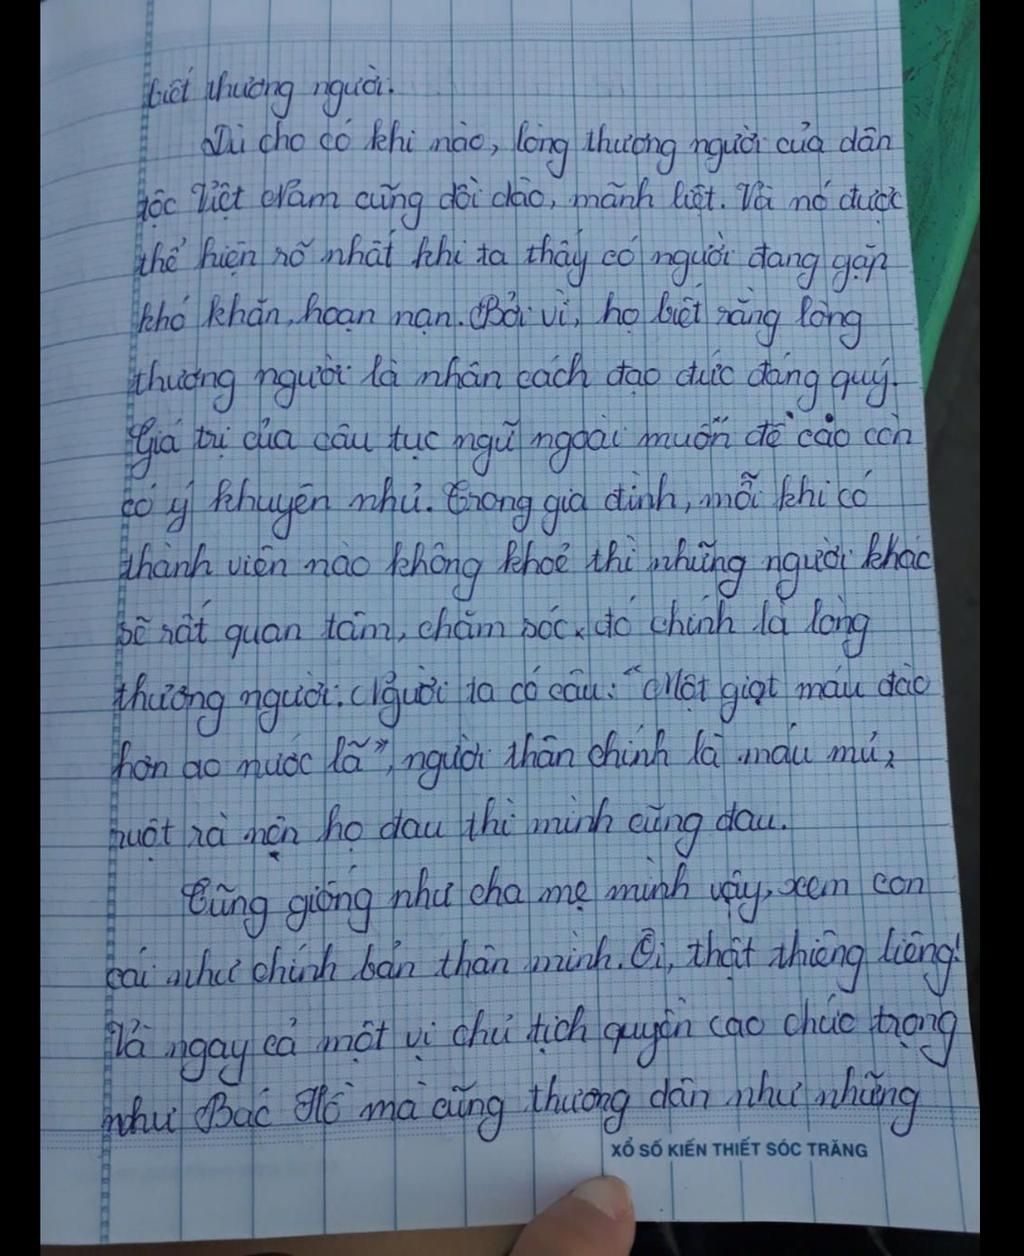 biết thương người.
Dù cho có khi nào, lòng thương người của dân
tộc Việt Nam cũng dồi dào, mãnh liệt. Và nó được
thể hiện rõ nhất khi ta thấy có người đang gặp
khó khăn, hoạn nạn. Bởi vì, họ biết rằng lòng
thương người là nhân cách đạo đức đáng quý.
Giá trị của câu tục ngữ ngoài muốn đề cao còn
có ý khuyên nhủ. Trong gia đình, mỗi khi có
thành viên nào không khoẻ thì những người khác
sẽ rất quan tâm, chăm sóc. đó chính là lòng
thương người. Người ta có câu: "Một giọt máu đào
hơn ao nước lã", người thân chính là máu mủ,
ruột rà nên họ đau thì mình cũng đau.
Cũng giống như cha mẹ mình vậy, xem con
cái như chính bản thân mình. Ôi, thật thiêng liêng!
Và ngay cả một vị chủ tịch quyền cao chức trọng
như Bác Hồ mà cũng thương dân như những
XỔ SỐ KIẾN THIẾT SÓC TRĂNG